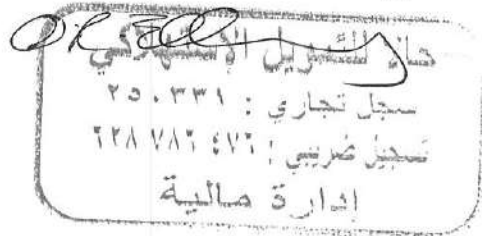 للتمويل الإستهلاكي
سجل تجاري : ٢٥٠٣٣١
تسجيل ضريبي : ٦٢٨ ٧٨٦ ٤٧٦
إدارة مالية